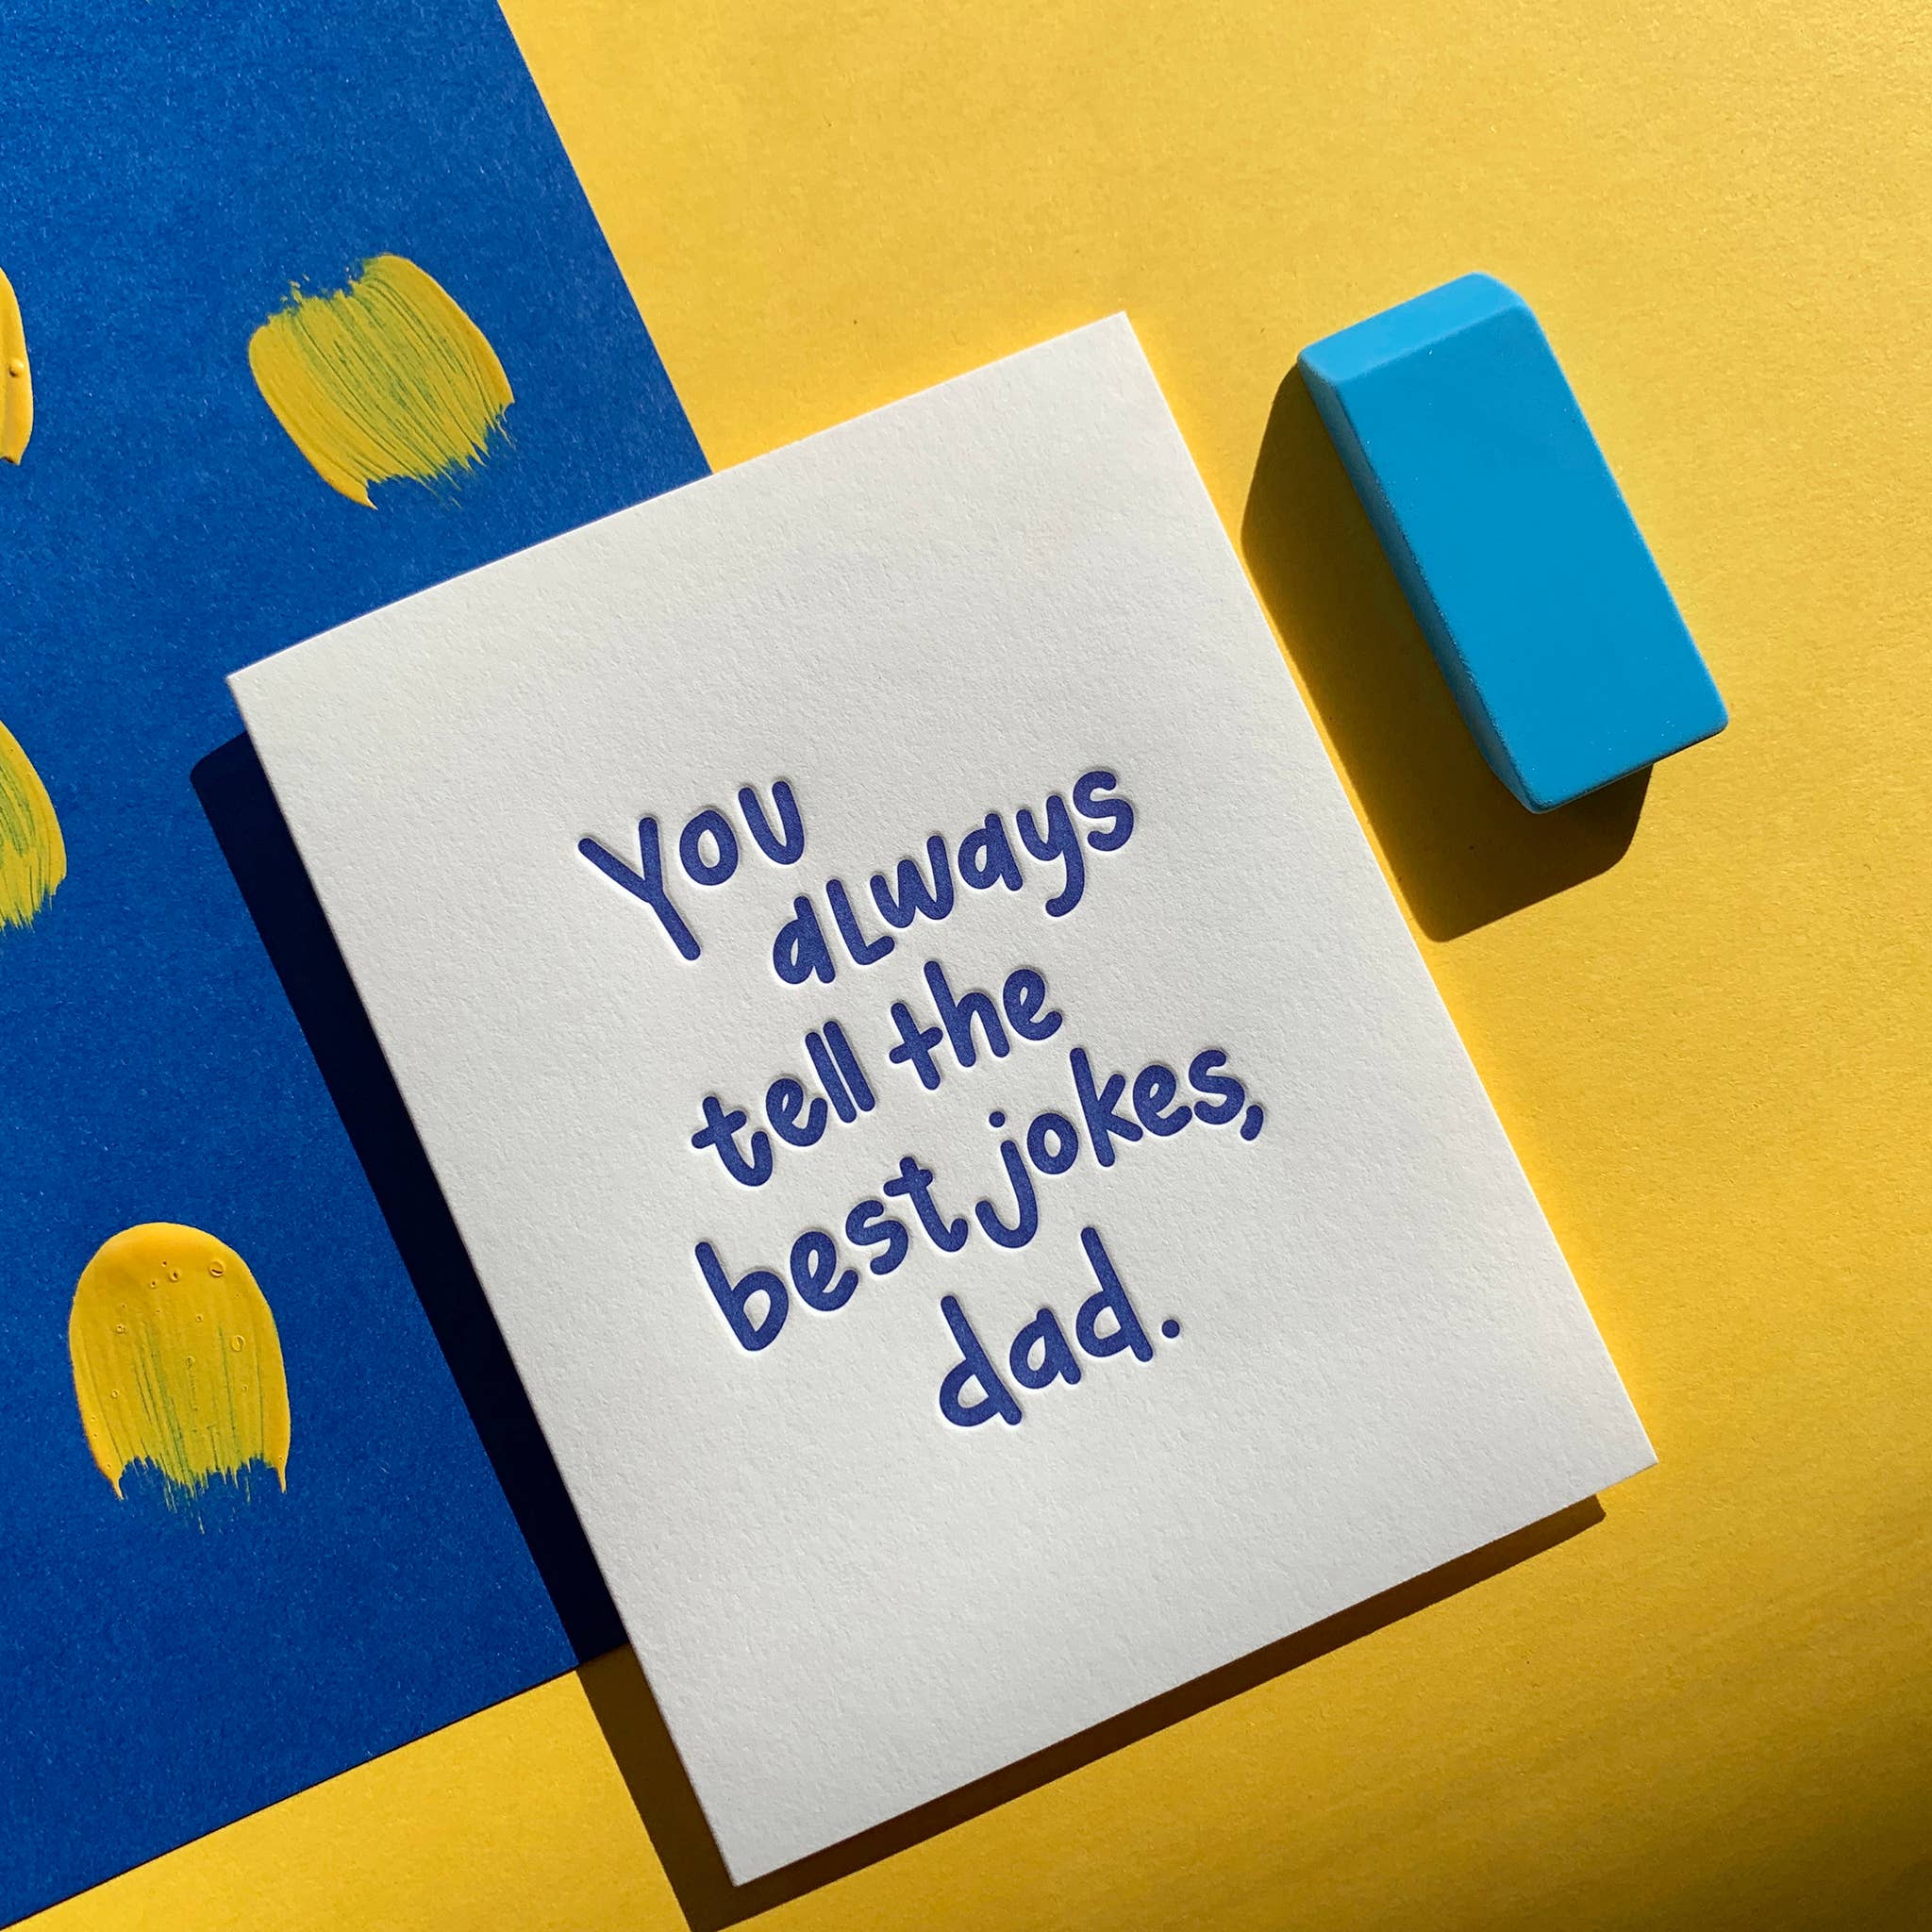 You
always
tell the
best jokes,
dad.